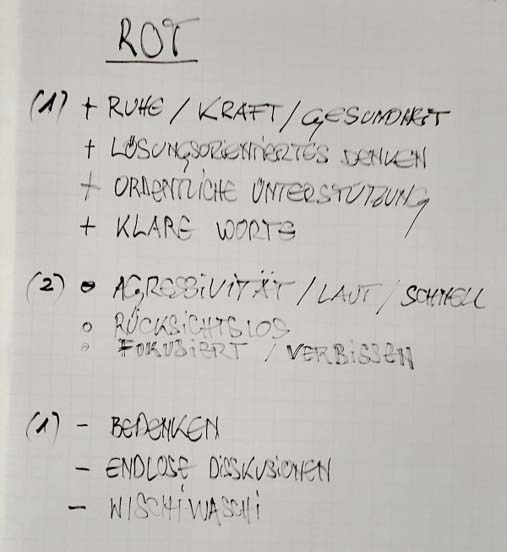 ROT
(1) + RUHE / KRAFT / GESUNDHEIT
+ LÖSUNGSORIENTIERTES DENKEN
+ ORDENTLICHE UNTERSTÜTZUNG
+ KLARE WORTE
(2) • AGRESSIVITÄT / LAUT / SCHNELL
○ RÜCKSICHTSLOS
○ FOKUSIERT / VERBISSEN
(1) - BEDENKEN
- ENDLOSE DISSKUSIONEN
- WISCHI-WASCHI